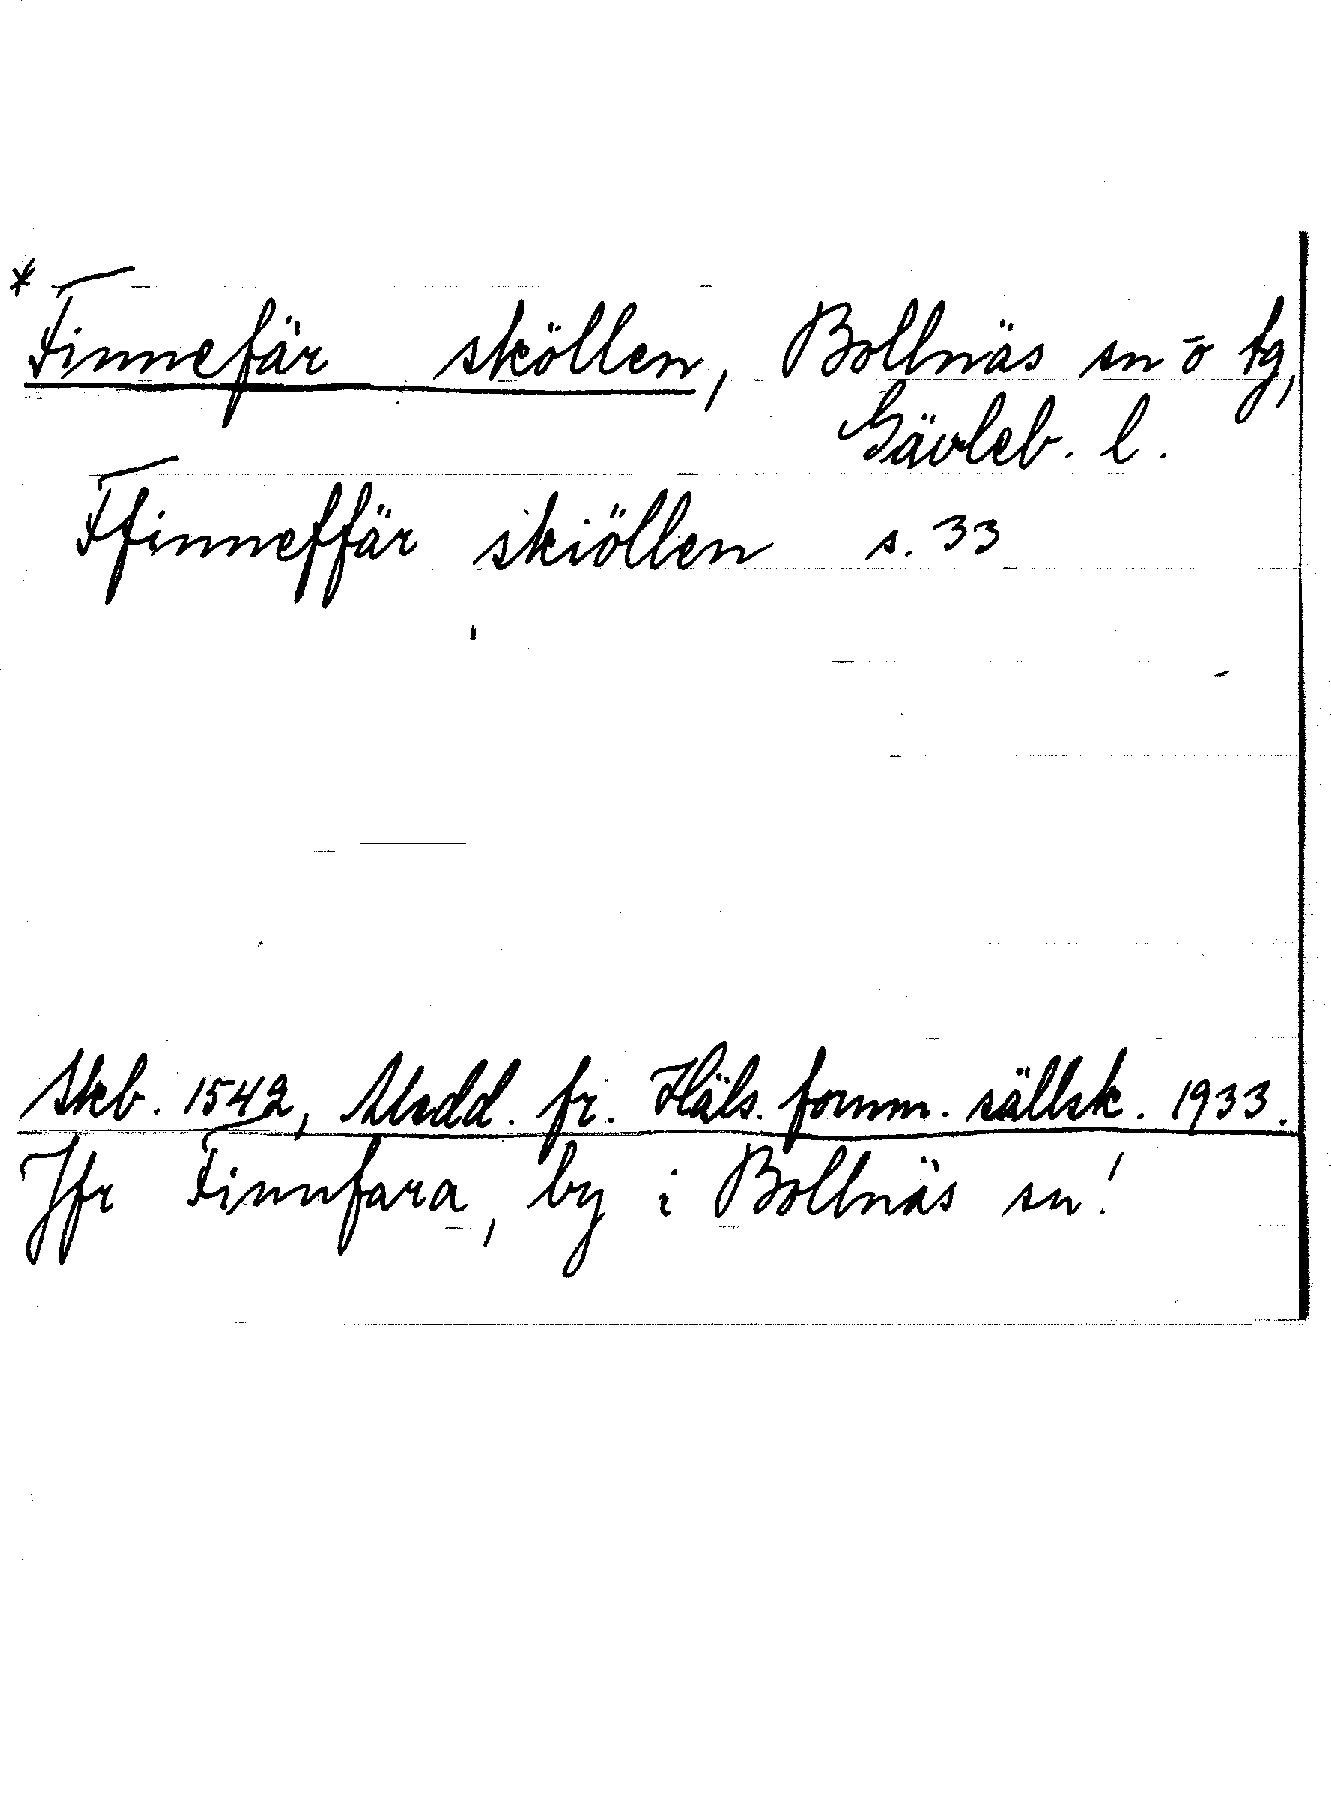 * Finnefär sköllen, Bollnäs sn o tg,
Gävleb. l.
Ffinneffär skiöllen s. 33
Skb. 1542, Medd. fr. Häls. fornm. sällsk. 1933.
Jfr Finnfara, by i Bollnäs sn!